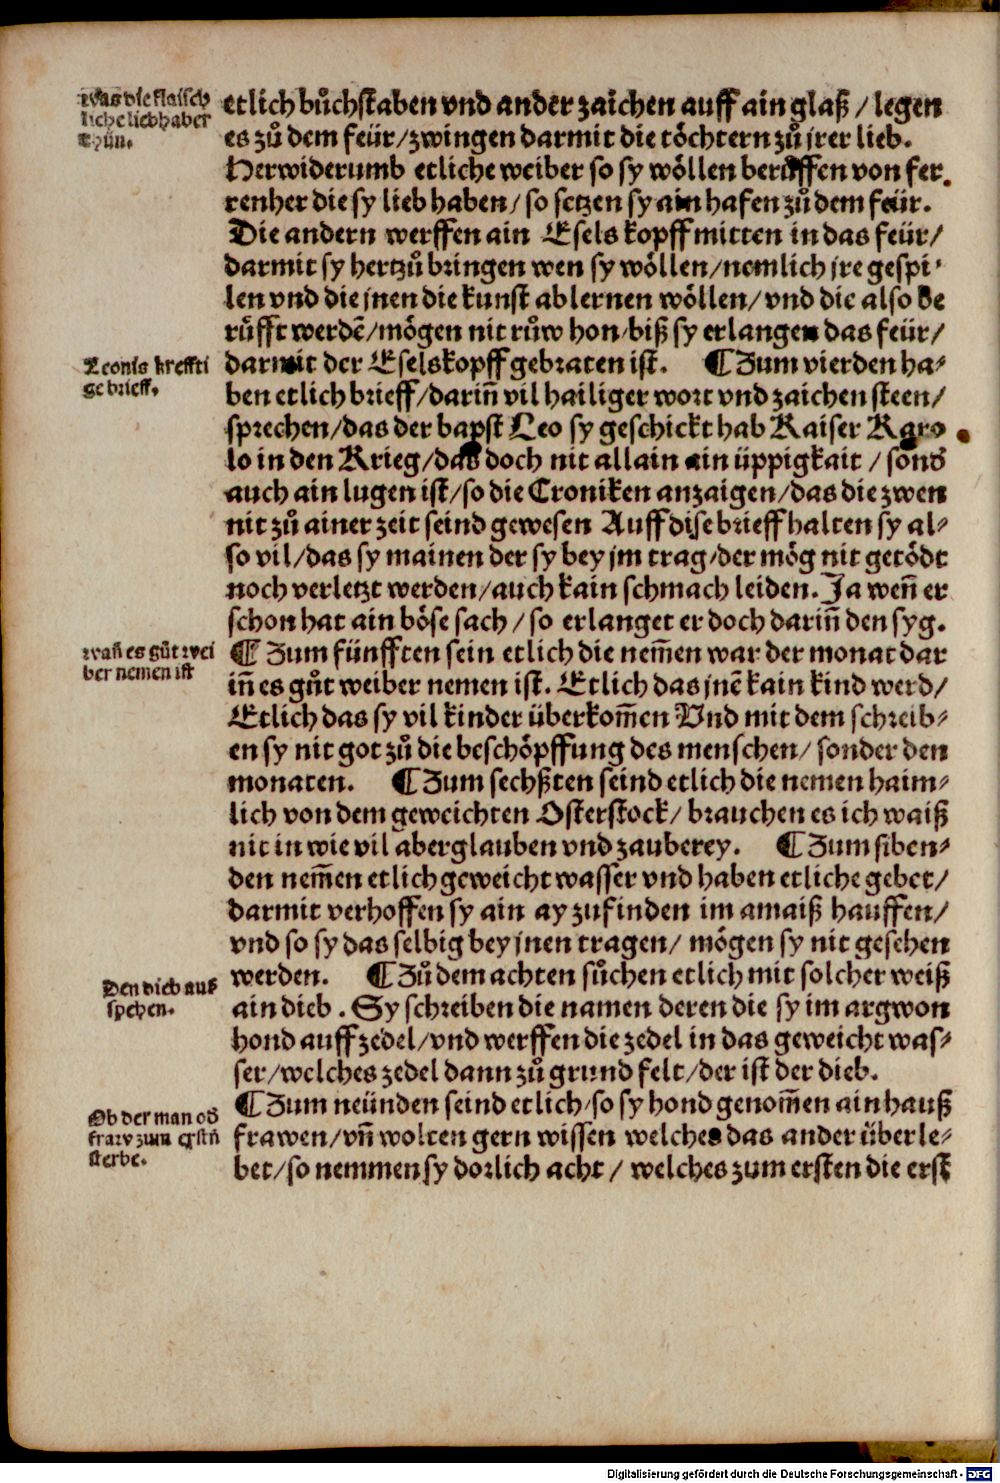 Was die flaisch
liche liebhaber
thůn.
etlich bůchstaben vnd ander zaichen auff ain glaß / legen
es zů dem feür/zwingen darmit die töchtern zů jrer lieb.
Herwiderumb etliche weiber so sy wöllen berůffen von fer
renher die sy lieb haben/ so setzen sy ain hafen zů dem feür.
Die andern werffen ain Esels kopff mitten in das feür/
darmit sy hertzů bringen wen sy wöllen/nemlich jre gespi-
len vnd die jnen die kunst ablernen wöllen/vnd die also be
rüfft werdē/mögen nit růw hon/biß sy erlangen das feür/
Leonis kreffti
ge brieff.
darmit der Eselskopff gebraten ist. ¶Zum vierden ha-
ben etlich brieff/dariñ vil hailiger wort vnd zaichen steen/
sprechen/das der bapst Leo sy geschickt hab Kaiser Karo
lo in den Krieg/das doch nit allain ain üppigkait / sonđ
auch ain lugen ist/so die Croniken anzaigen/das die zwen
nit zů ainer zeit seind gewesen Auff dise brieff halten sy al-
so vil/das sy mainen der sy bey jm trag/der mög nit getödt
noch verletzt werden/auch kain schmach leiden. Ja weñ er
schon hat ain böse sach / so erlanget er doch dariñ den syg.
wañ es gůt wei
ber nemen ist
¶ Zum fünfften sein etlich die nem̄en war der monat dar
iñ es gůt weiber nemen ist. Etlich das jnē kain kind werd/
Etlich das sy vil kinder überkom̄en Vnd mit dem schreib-
en sy nit got zů die beschöpffung des menschen/ sonder den
monaten. ¶Zum sechßten seind etlich die nemen haim-
lich von dem geweichten Osterstock/ brauchen es ich waiß
nit in wie vil aberglauben vnd zauberey. ¶Zum siben-
den nem̄en etlich geweicht wasser vnd haben etliche gebet/
darmit verhoffen sy ain ay zufinden im amaiß hauffen/
vnd so sy das selbig bey jnen tragen/ mögen sy nit gesehen
Den dieb auß
spehen.
werden. ¶Zů dem achten sůchen etlich mit solcher weiß
ain dieb . Sy schreiben die namen deren die sy im argwon
hond auff zedel/vnd werffen die zedel in das geweicht was-
ser/welches zedel dann zů grund felt/der ist der dieb.
Ob der man ođ
fraw zum erstñ
sterbe.
¶Zum neünden seind etlich/so sy hond genom̄en ain hauß
frawen/vñ wolten gern wissen welches das ander überle-
bet/so nemmen sy dorlich acht / welches zum ersten die erst
Digitalisierung gefördert durch die Deutsche Forschungsgemeinschaft - DFG